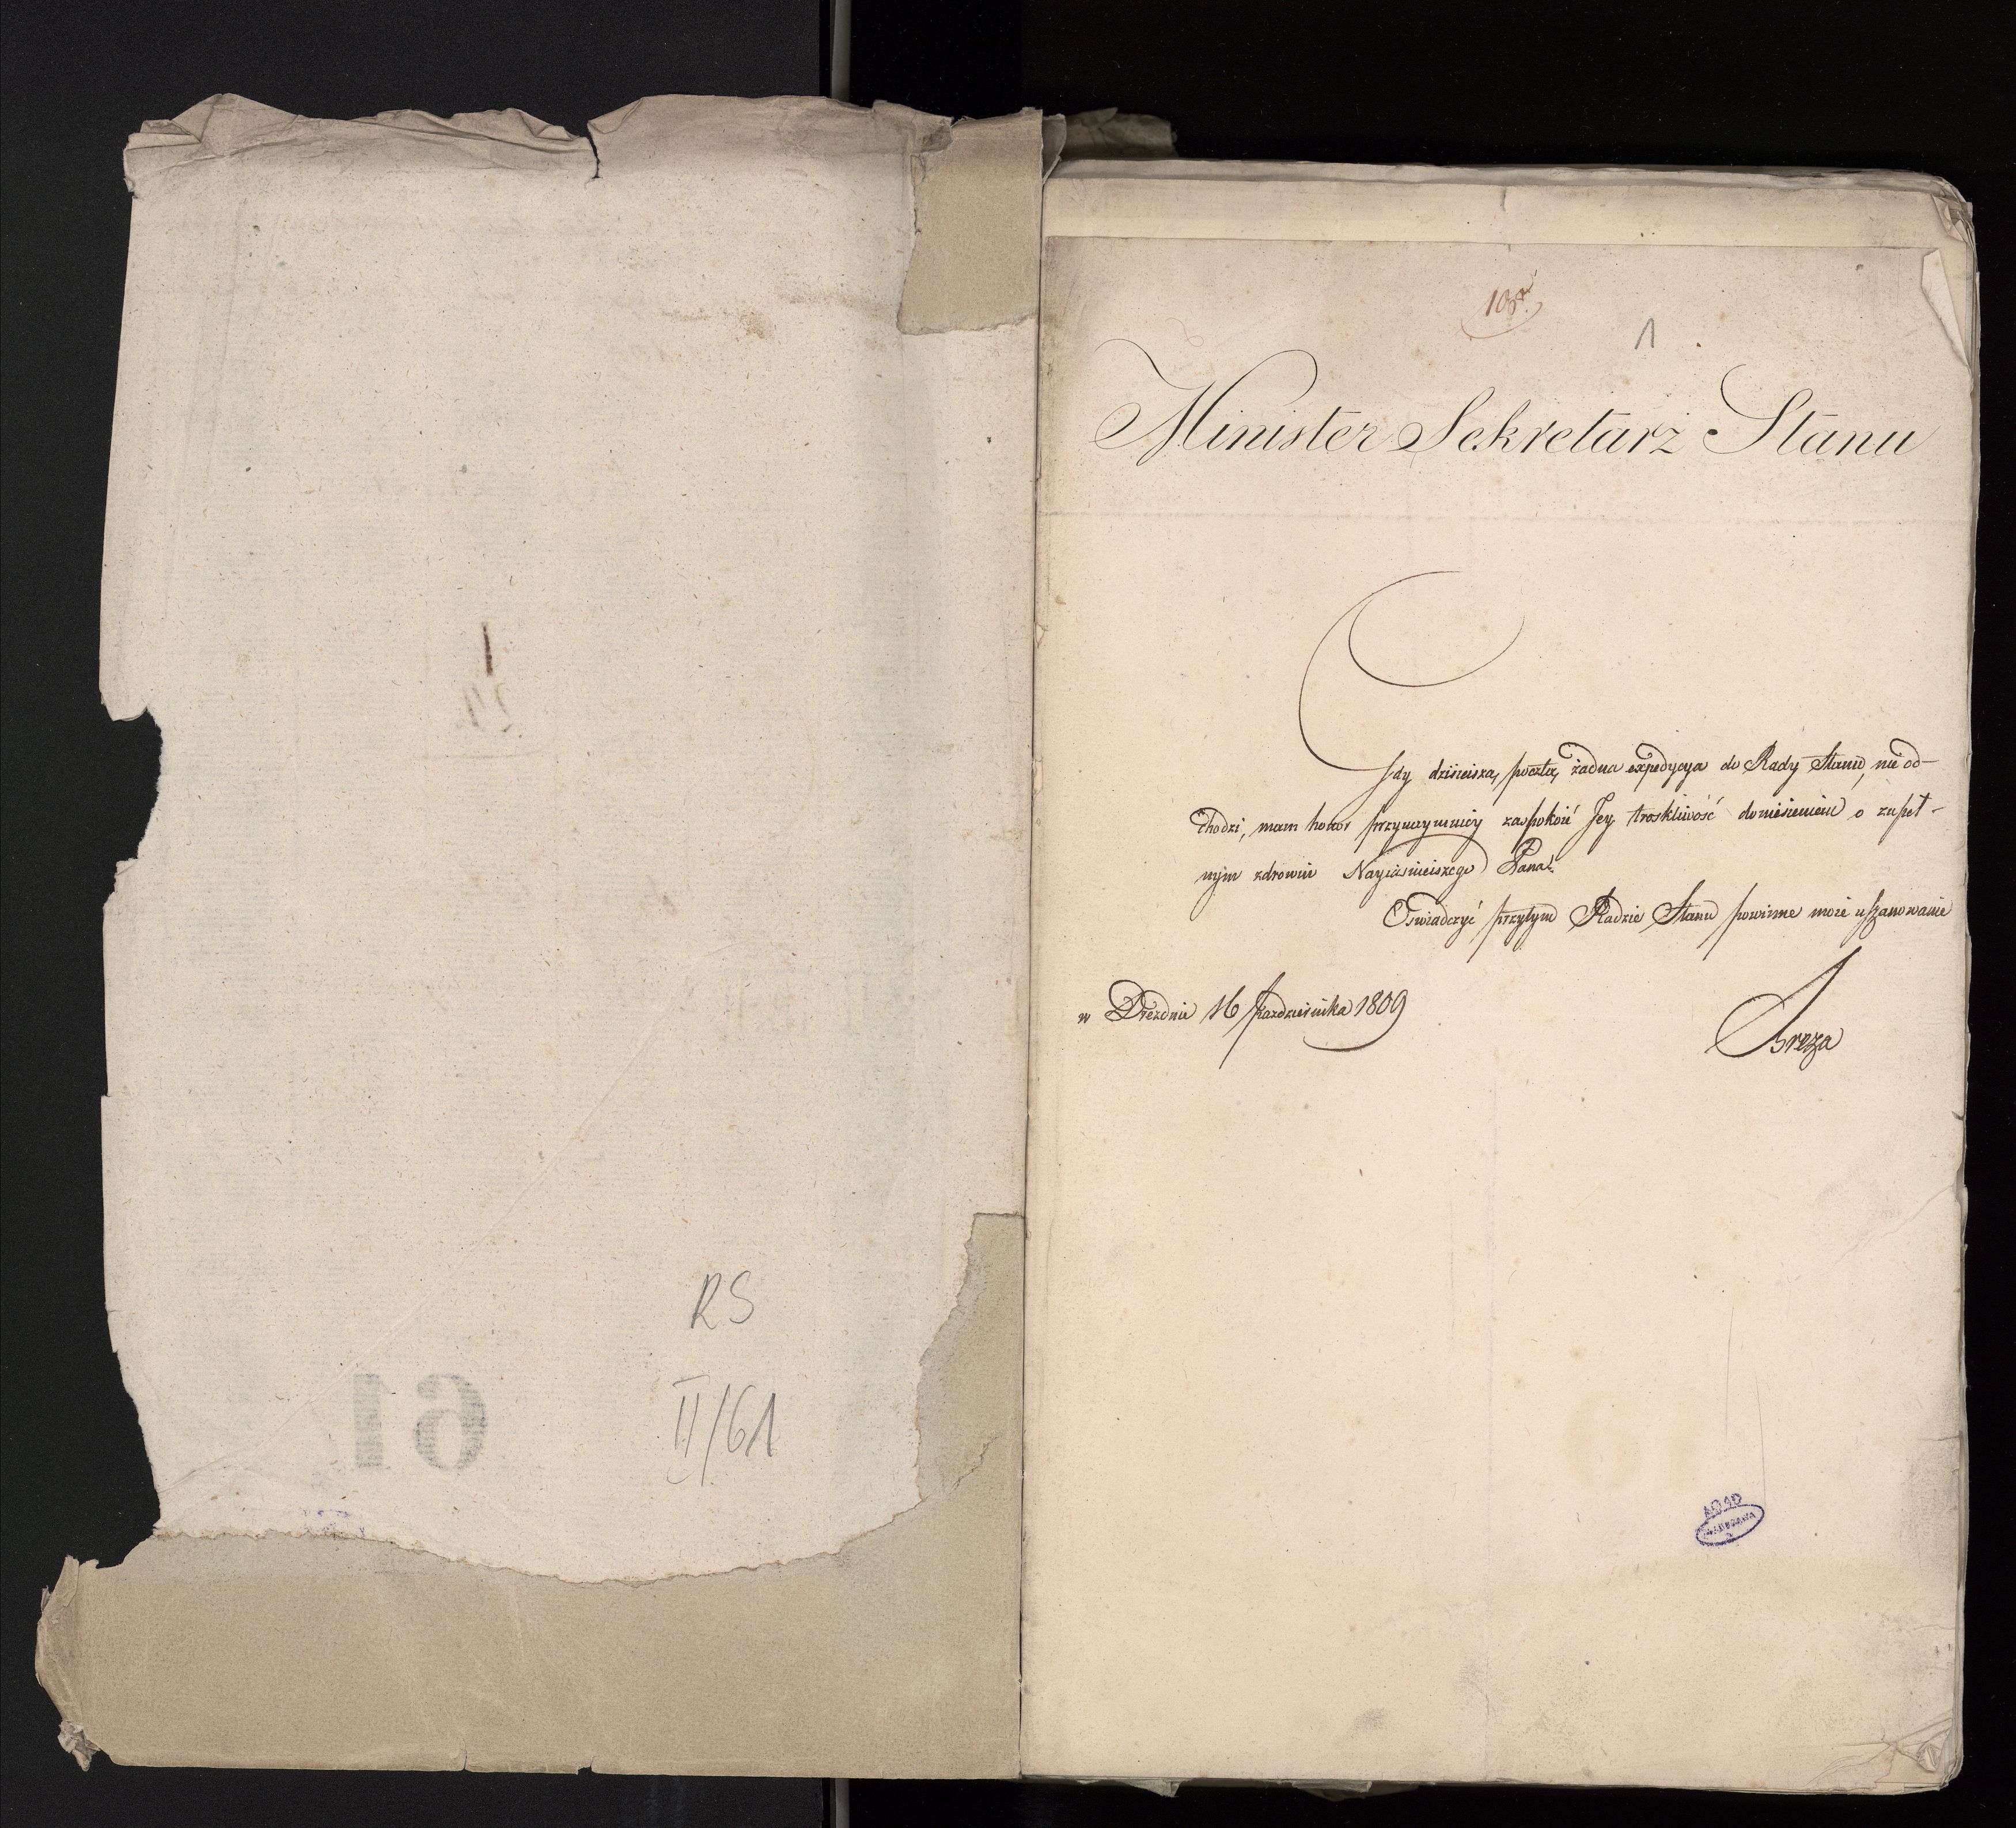 RS
II/61
61
1
Minister Sekretarz Stanu
Gdy dzisieiszą pocztą żadna expedycya do Rady Stanu nie od-
chodzi, mam honor przynaymniey zaspokoić Jey troskliwość doniesieniem o zupeł-
nym zdrowiu Nayiaśnieiszego Pana.
Oświadczyć przytym Radzie Stanu powinne moie uszanowanie
w Dreznie 16 Października 1809
Breza
AGAD
WARSZAWA